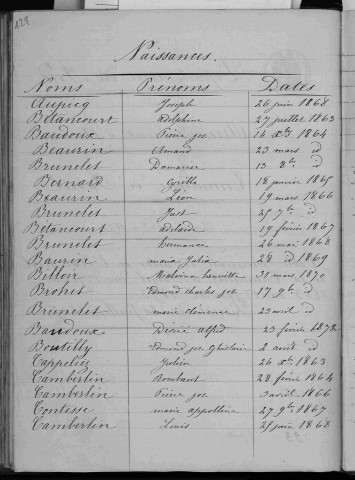 128
Naissances.
Noms Prénoms Dates
Aupicq Joseph 26 juin 1868
Bétancourt Adelphine 27 juillet 1863
Baudoux Pierre jos. 14 Xbre 1864
Beaurin Armand 23 mars d
Brunelet Damarise 13 8bre d
Bernard Cyrille 18 janvier 1865
Beaurin Léon 19 mars 1866
Brunelet Just 25 7bre d
Bétancourt adelaïde 19 février 1867
Brunelet hermance 26 mai 1868
Baurin maria Julia 28 d 1869
Billoir Malvina 31 mars 1870
Brohet Edmond charles jos. 17 9bre d
Brunelet marie clemence 23 avril d
Baudoux Désiré alfred 23 février 1872
Boutilly Edmond jos. Ghislain 2 août d
Cappeliez Julien 26 Xbre 1863
Camberlin Rombaut 28 février 1864
Camberlin Pierre jos. 3 avril 1866
Contesse marie appolline 27 9bre 1867
Camberlin Louis 25 juin 1868